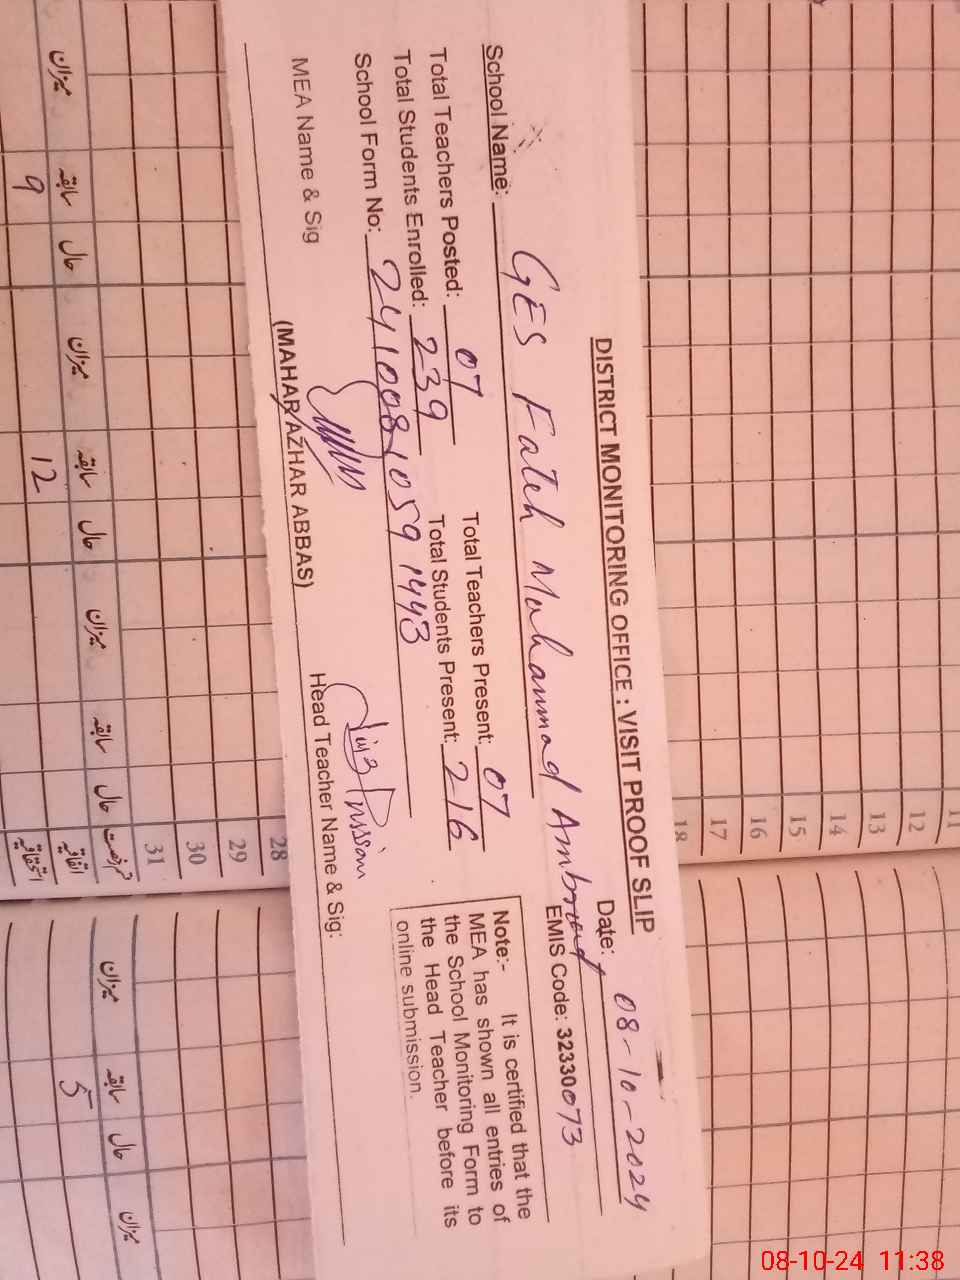 DISTRICT MONITORING OFFICE : VISIT PROOF SLIP
Date: 08-10-2024
School Name: GES Fateh Muhammad Ambrond
EMIS Code: 32330073
Total Teachers Posted: 07 Total Teachers Present: 07
Total Students Enrolled: 239 Total Students Present: 216
School Form No: 2410081059 1443
Note:- It is certified that the
MEA has shown all entries of
the School Monitoring Form to
the Head Teacher before its
online submission.
MEA Name & Sig
(MAHAR AZHAR ABBAS)
Head Teacher Name & Sig:
11
12
13
14
15
16
17
18
28
29
30
31
میزان سابقہ حال میزان سابقہ حال میزان سابقہ حال
اتفاقیہ
استحقاقیہ
9
12
میزان سابقہ حال میزان
5
08-10-24 11:38